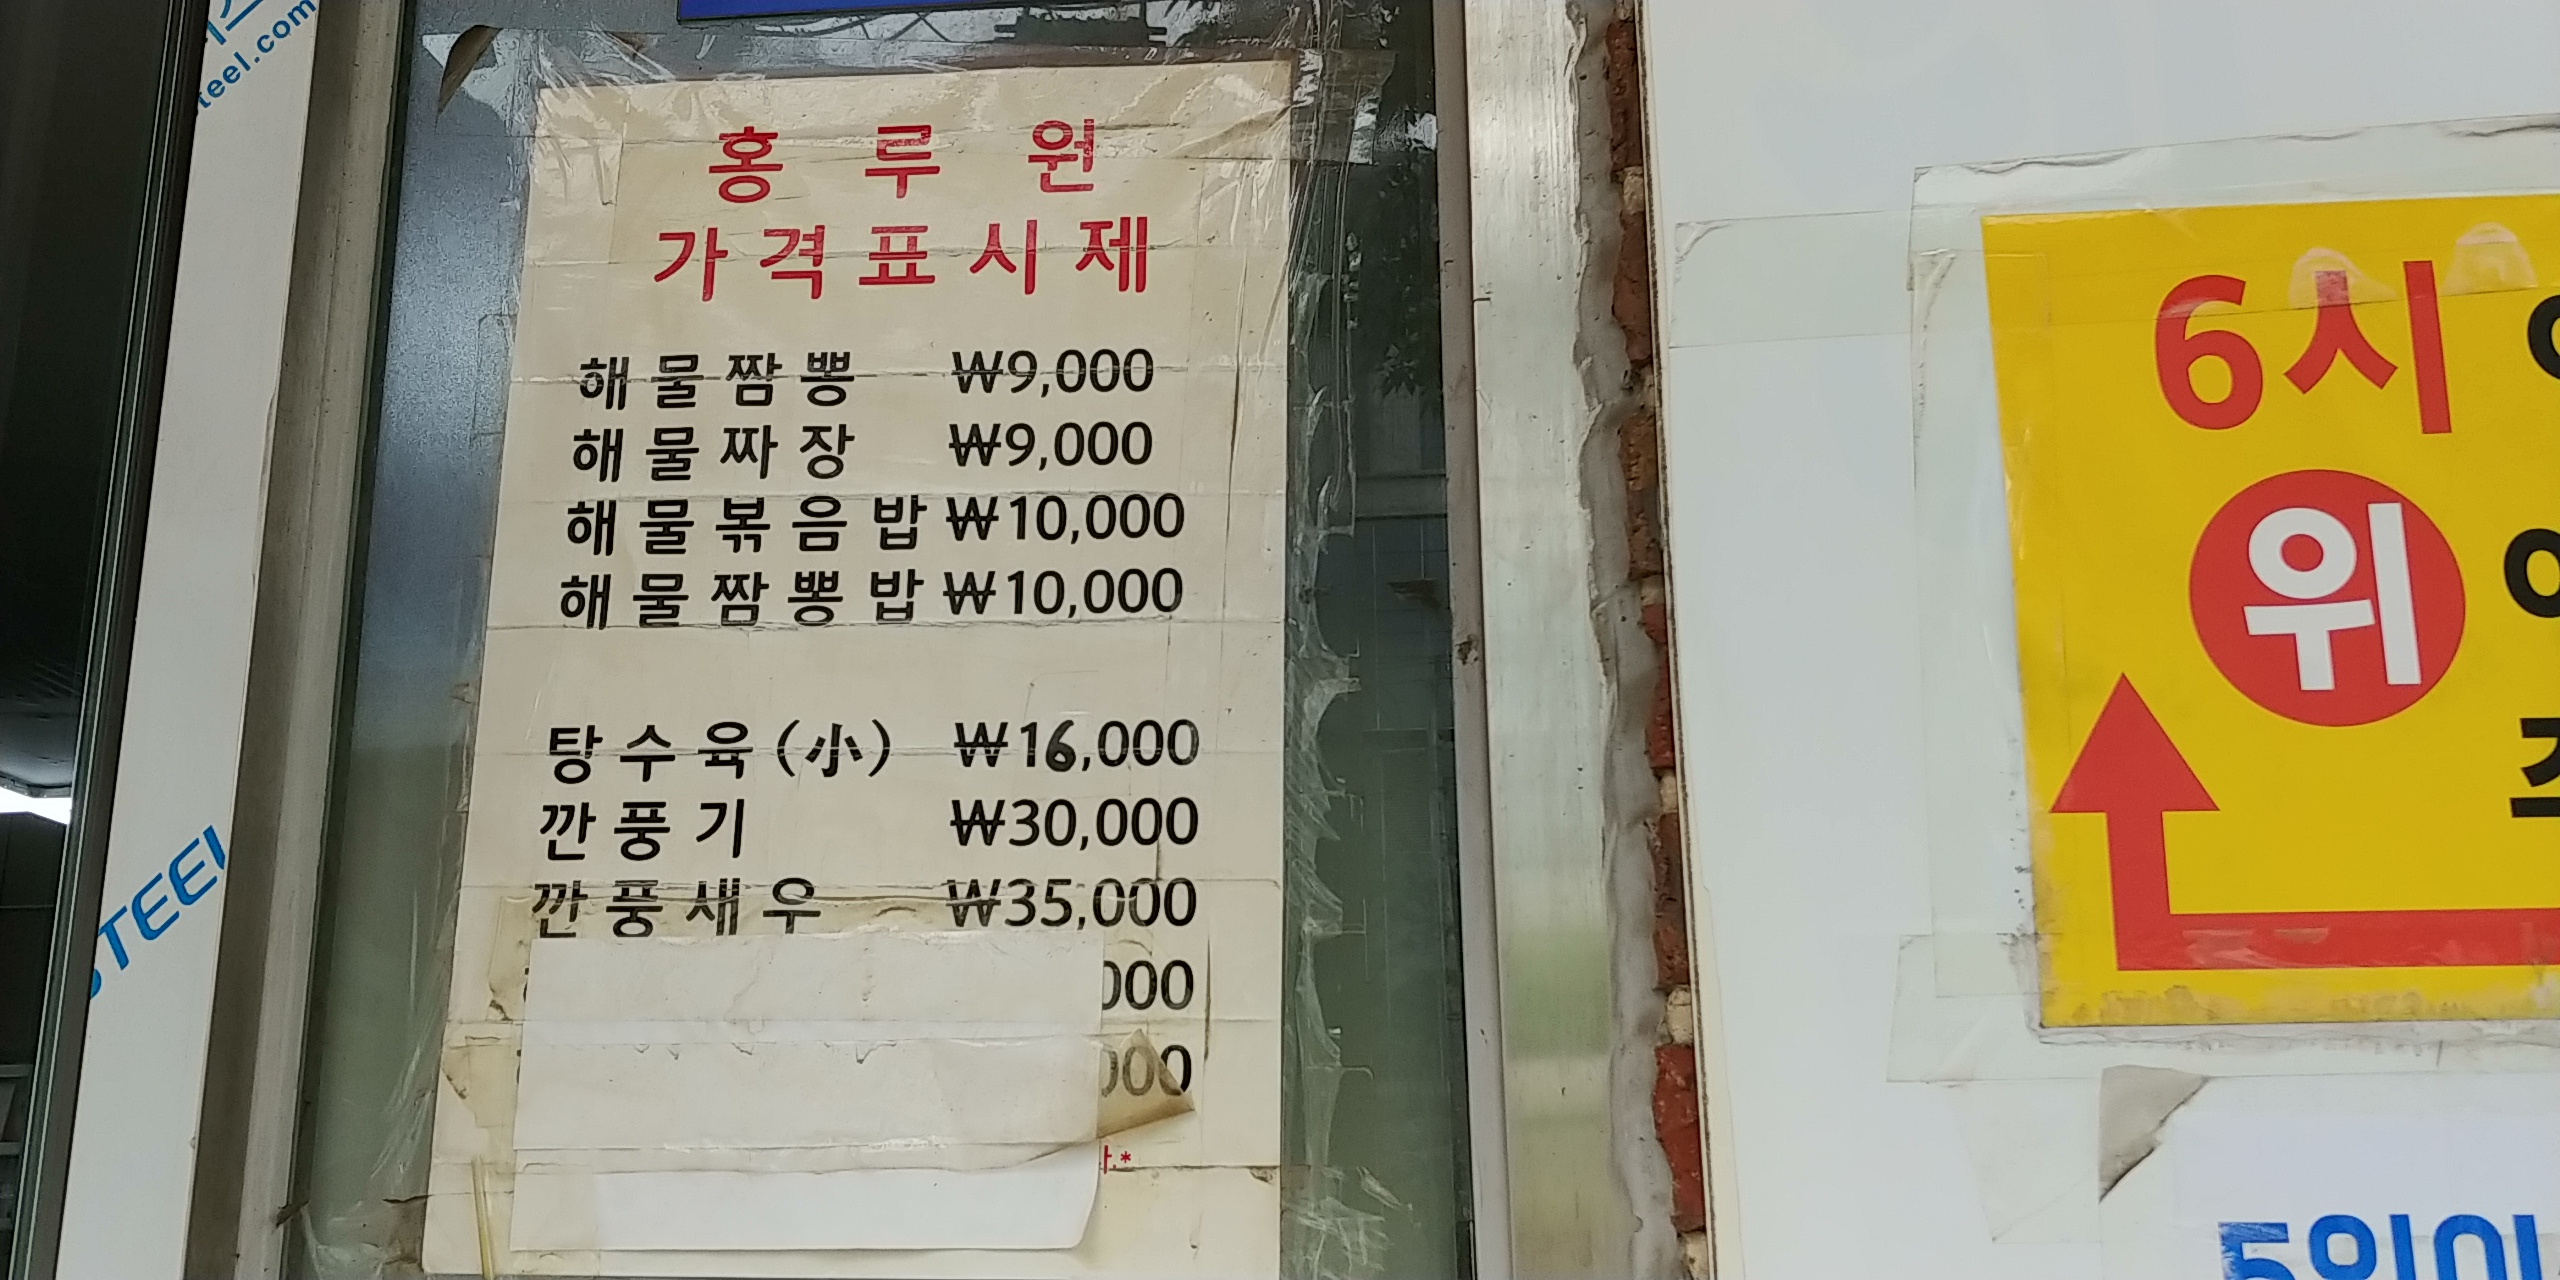 teel.com
STEEL
홍 루 원
가격표시제
해물짬뽕 ₩9,000
해물짜장 ₩9,000
해물볶음밥 ₩10,000
해물짬뽕밥 ₩10,000
탕수육(小) ₩16,000
깐풍기 ₩30,000
깐풍새우 ₩35,000
000
000
6시
위